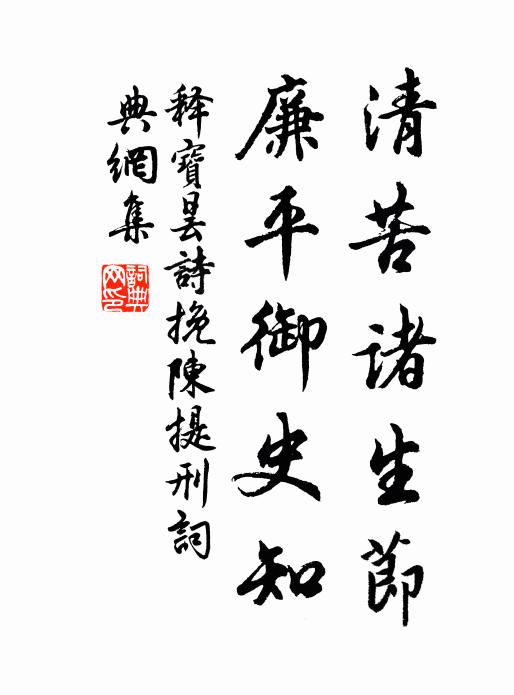 清苦諸生節
廉平御史知
释寶曇詩挽陳提刑詞
典網集
詞典網印